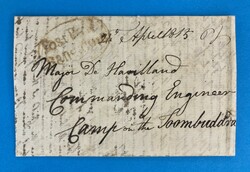 Post P
24 April 1815
Major De Havilland
Commanding Engineer
Camp on the Toombuddra